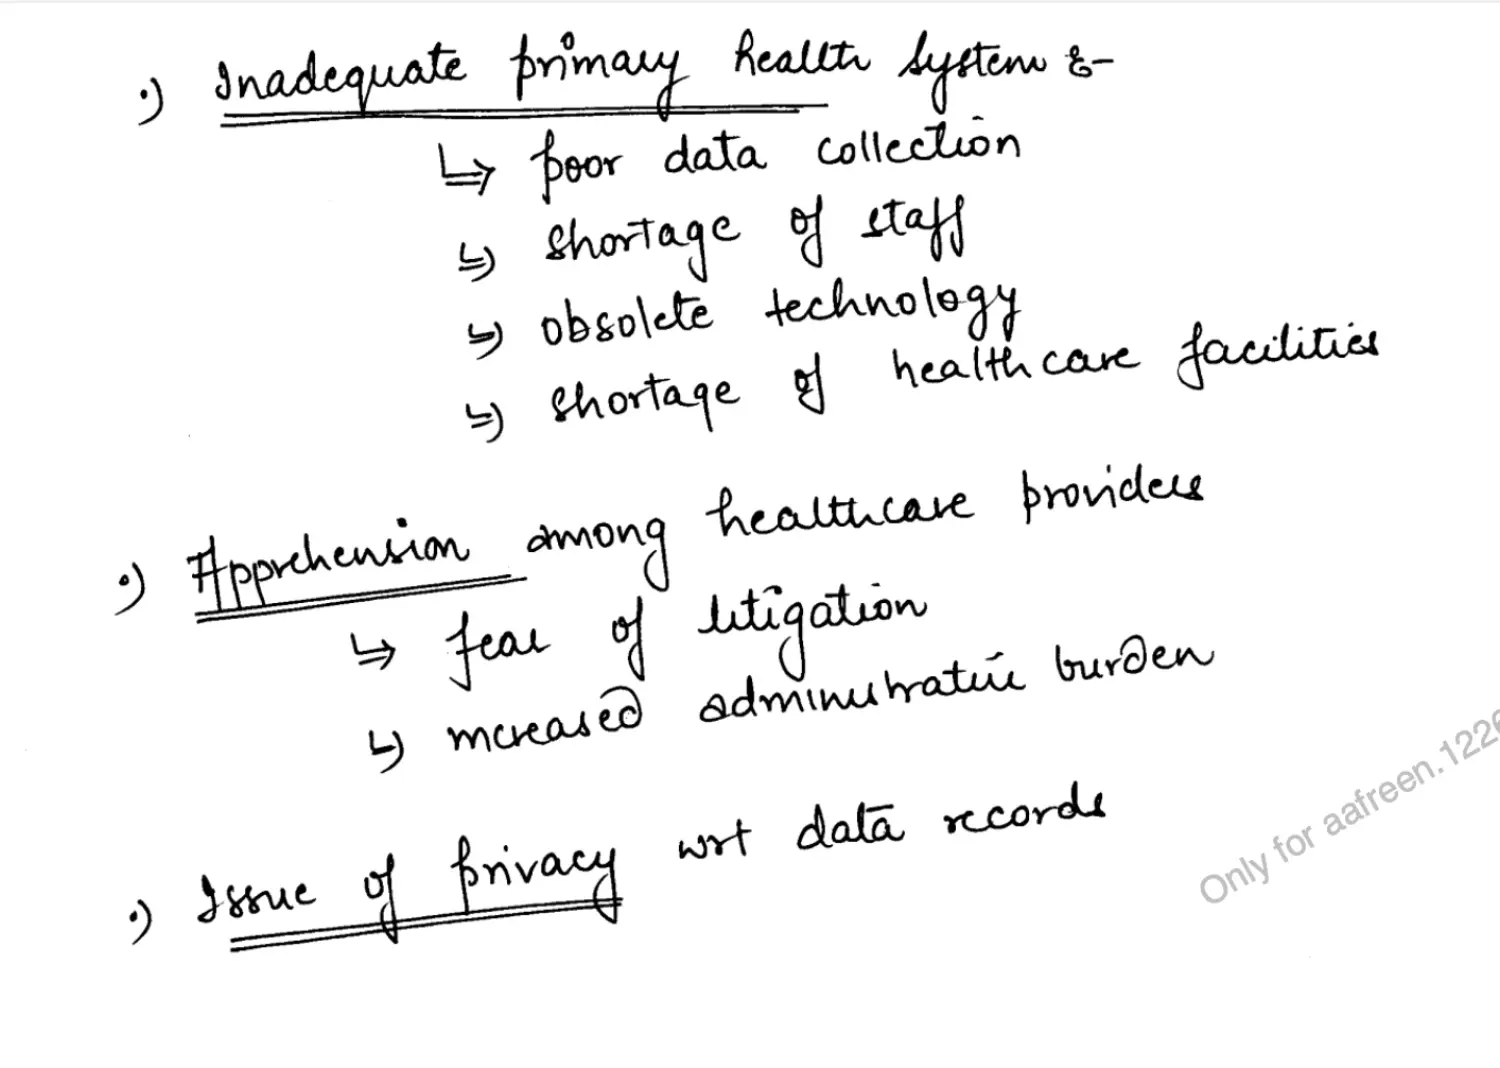 •) Inadequate primary health system :-
↳ poor data collection
↳ shortage of staff
↳ obsolete technology
↳ shortage of healthcare facilities
•) Apprehension among healthcare providers
↳ fear of litigation
↳ increased administrative burden
•) Issue of privacy wrt data records
Only for aafreen.1226